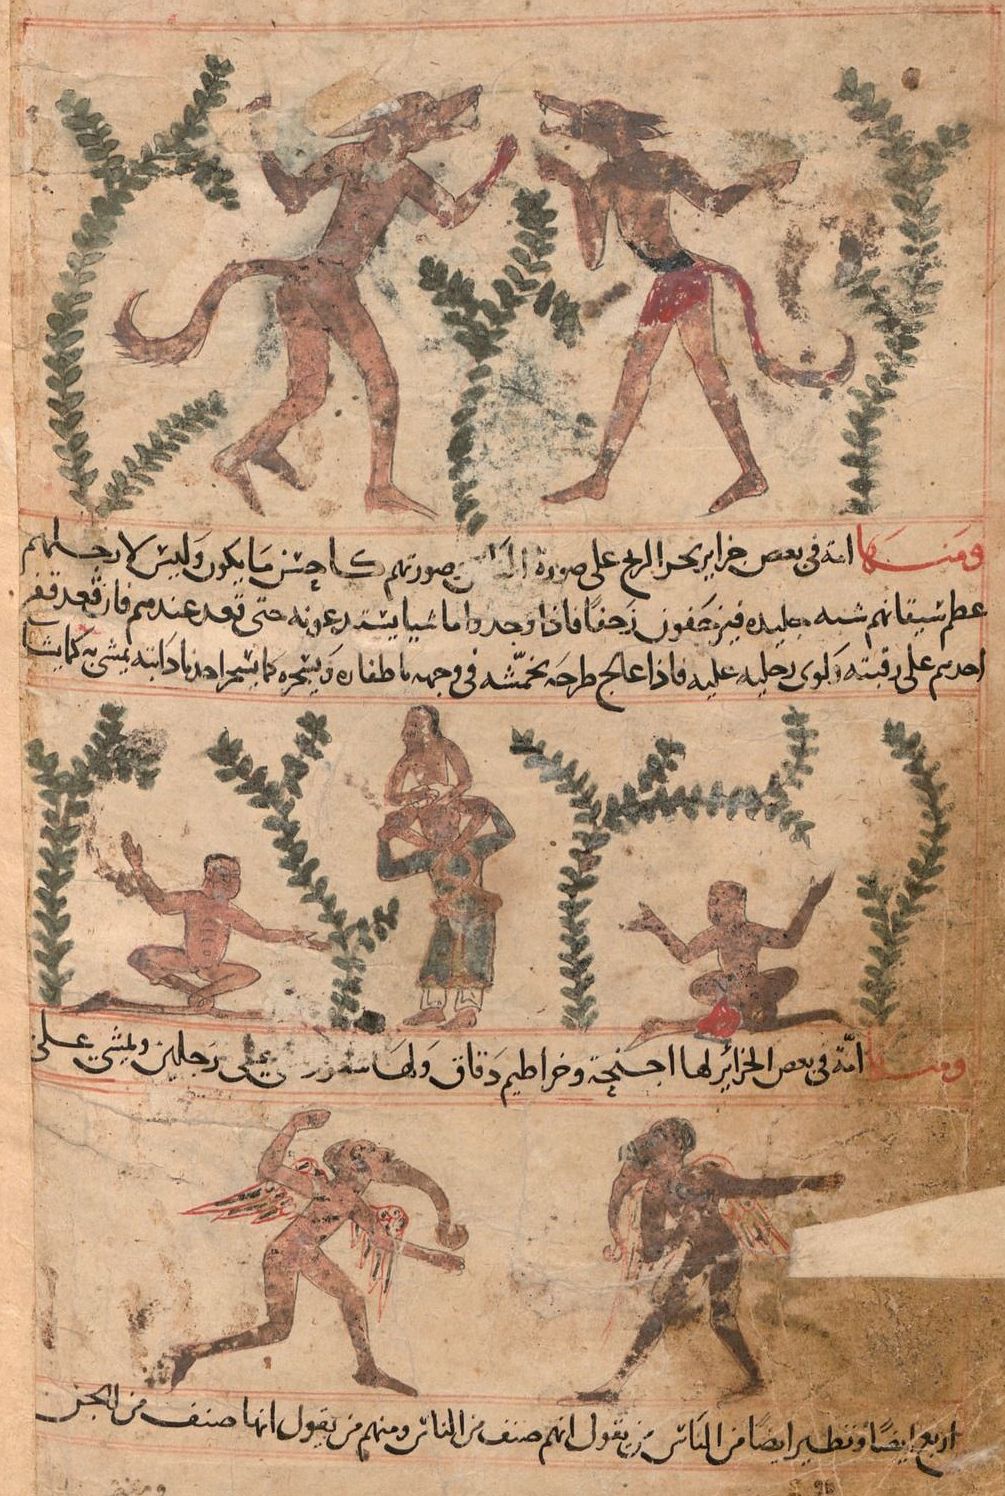 ومنها امة فى بعض جزاير بحر الزنج على صورة الناس صورتهم كاحسن ما يكون وليس لارجلهم
عظم سيقانهم شبه جليده فيزحفون زحفا فاذا وجدوا ماشيا يستدعونه حتى قعد عندهم فاذا قعد قفز
احدهم على رقبته ولوى رجليه عليه فاذا عالج طرحه يخمشه فى وجهه باظفاره ويسخره كما يسخر احدنا دابته يمشى به كما يشا
ومنها امة فى بعض الجزائر لها اجنحة وخراطيم دقاق ولها على رجلين ويمشى على
اربع ايضا وتطير ايضا من الناس من يقول انهم صنف من الناس ومنهم من يقول انها صنف من الجن